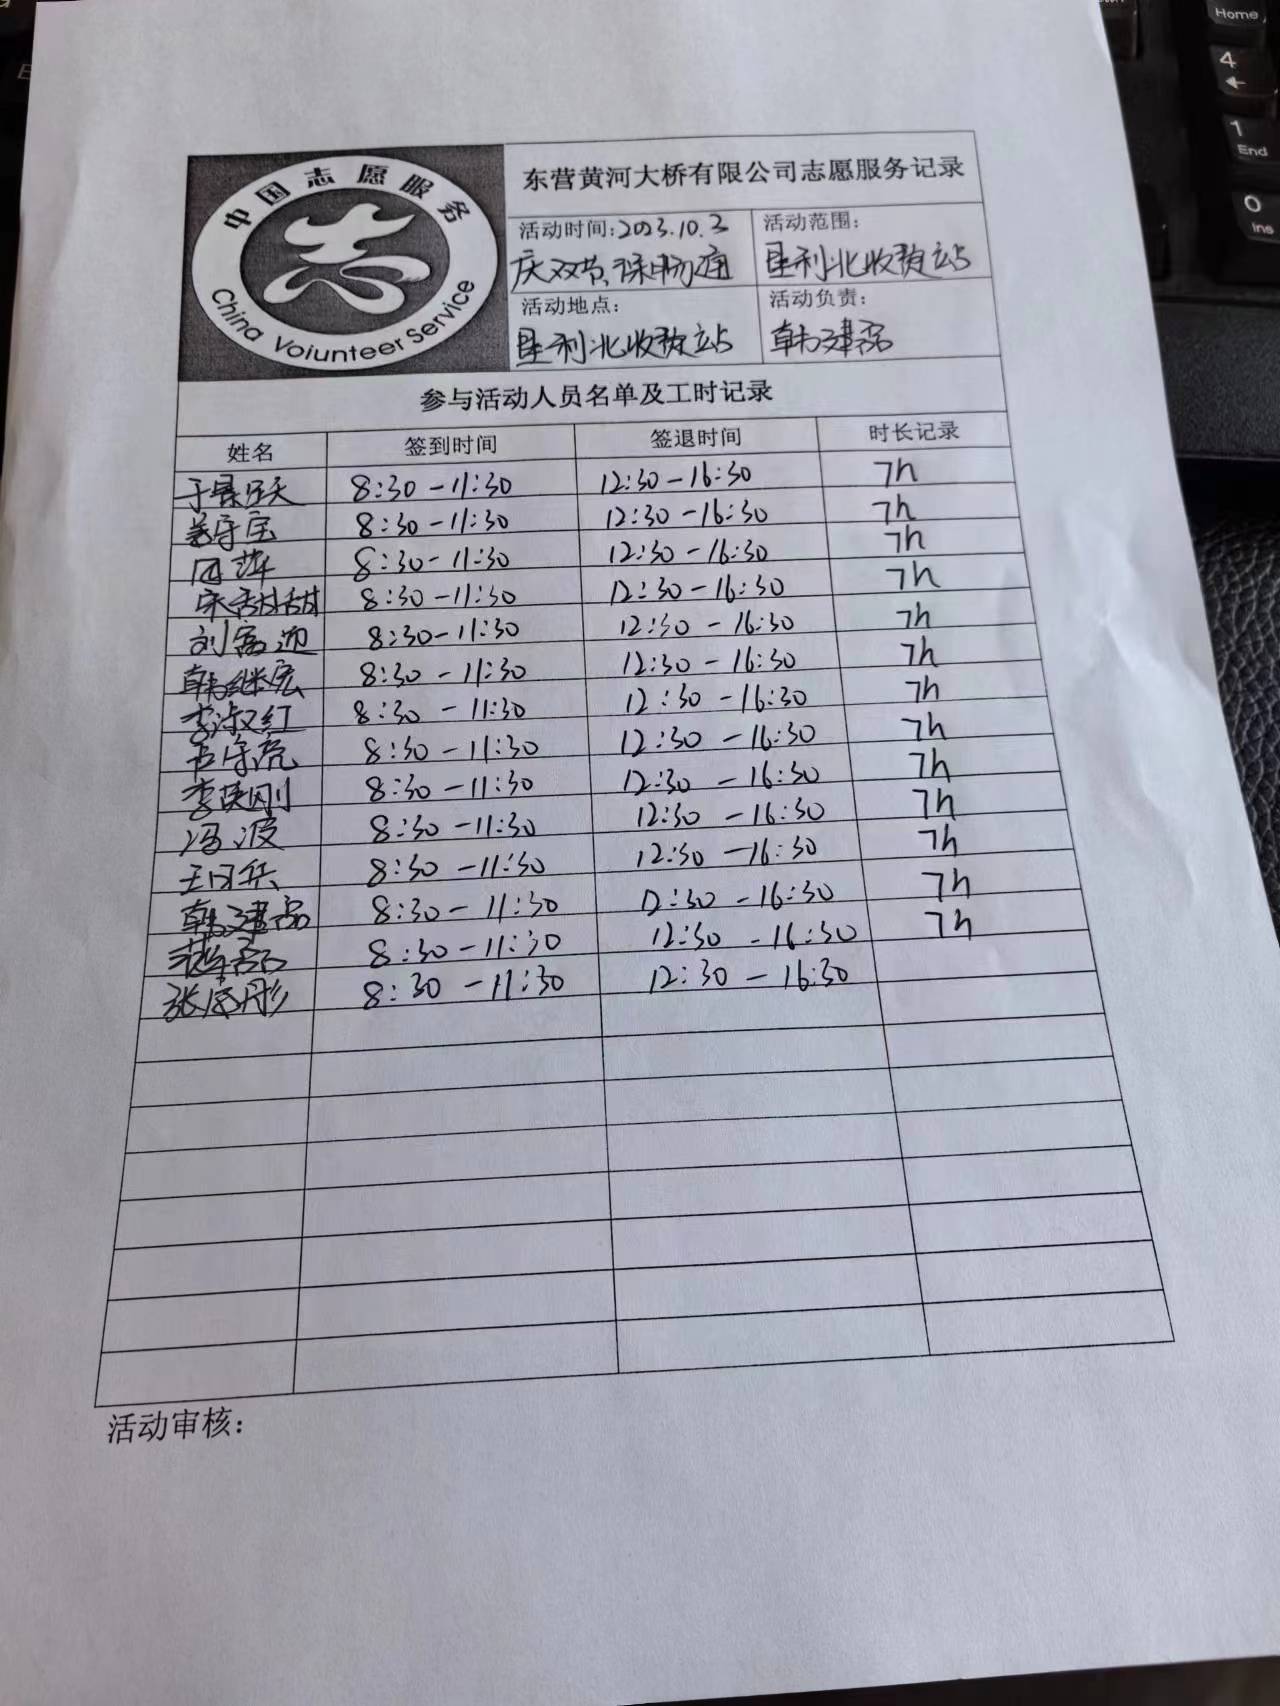 中国志愿服务
China Voiunteer Service
东营黄河大桥有限公司志愿服务记录
活动时间:2023.10.3
庆双节、保畅通
活动范围:
垦利北收费站
活动地点:
垦利北收费站
活动负责:
韩建磊
参与活动人员名单及工时记录
姓名 签到时间 签退时间 时长记录
8:30-11:30 12:30-16:30 7h
8:30-11:30 12:30-16:30 7h
8:30-11:30 12:30-16:30 7h
宋甜甜 8:30-11:30 12:30-16:30 7h
刘富迎 8:30-11:30 12:30-16:30 7h
韩继宏 8:30-11:30 12:30-16:30 7h
李淑红 8:30-11:30 12:30-16:30 7h
8:30-11:30 12:30-16:30 7h
李英刚 8:30-11:30 12:30-16:30 7h
冯波 8:30-11:30 12:30-16:30 7h
8:30-11:30 12:30-16:30 7h
韩建磊 8:30-11:30 12:30-16:30 7h
8:30-11:30 12:30-16:30 7h
8:30-11:30 12:30-16:30
活动审核:
Home
4
1
End
0
Ins